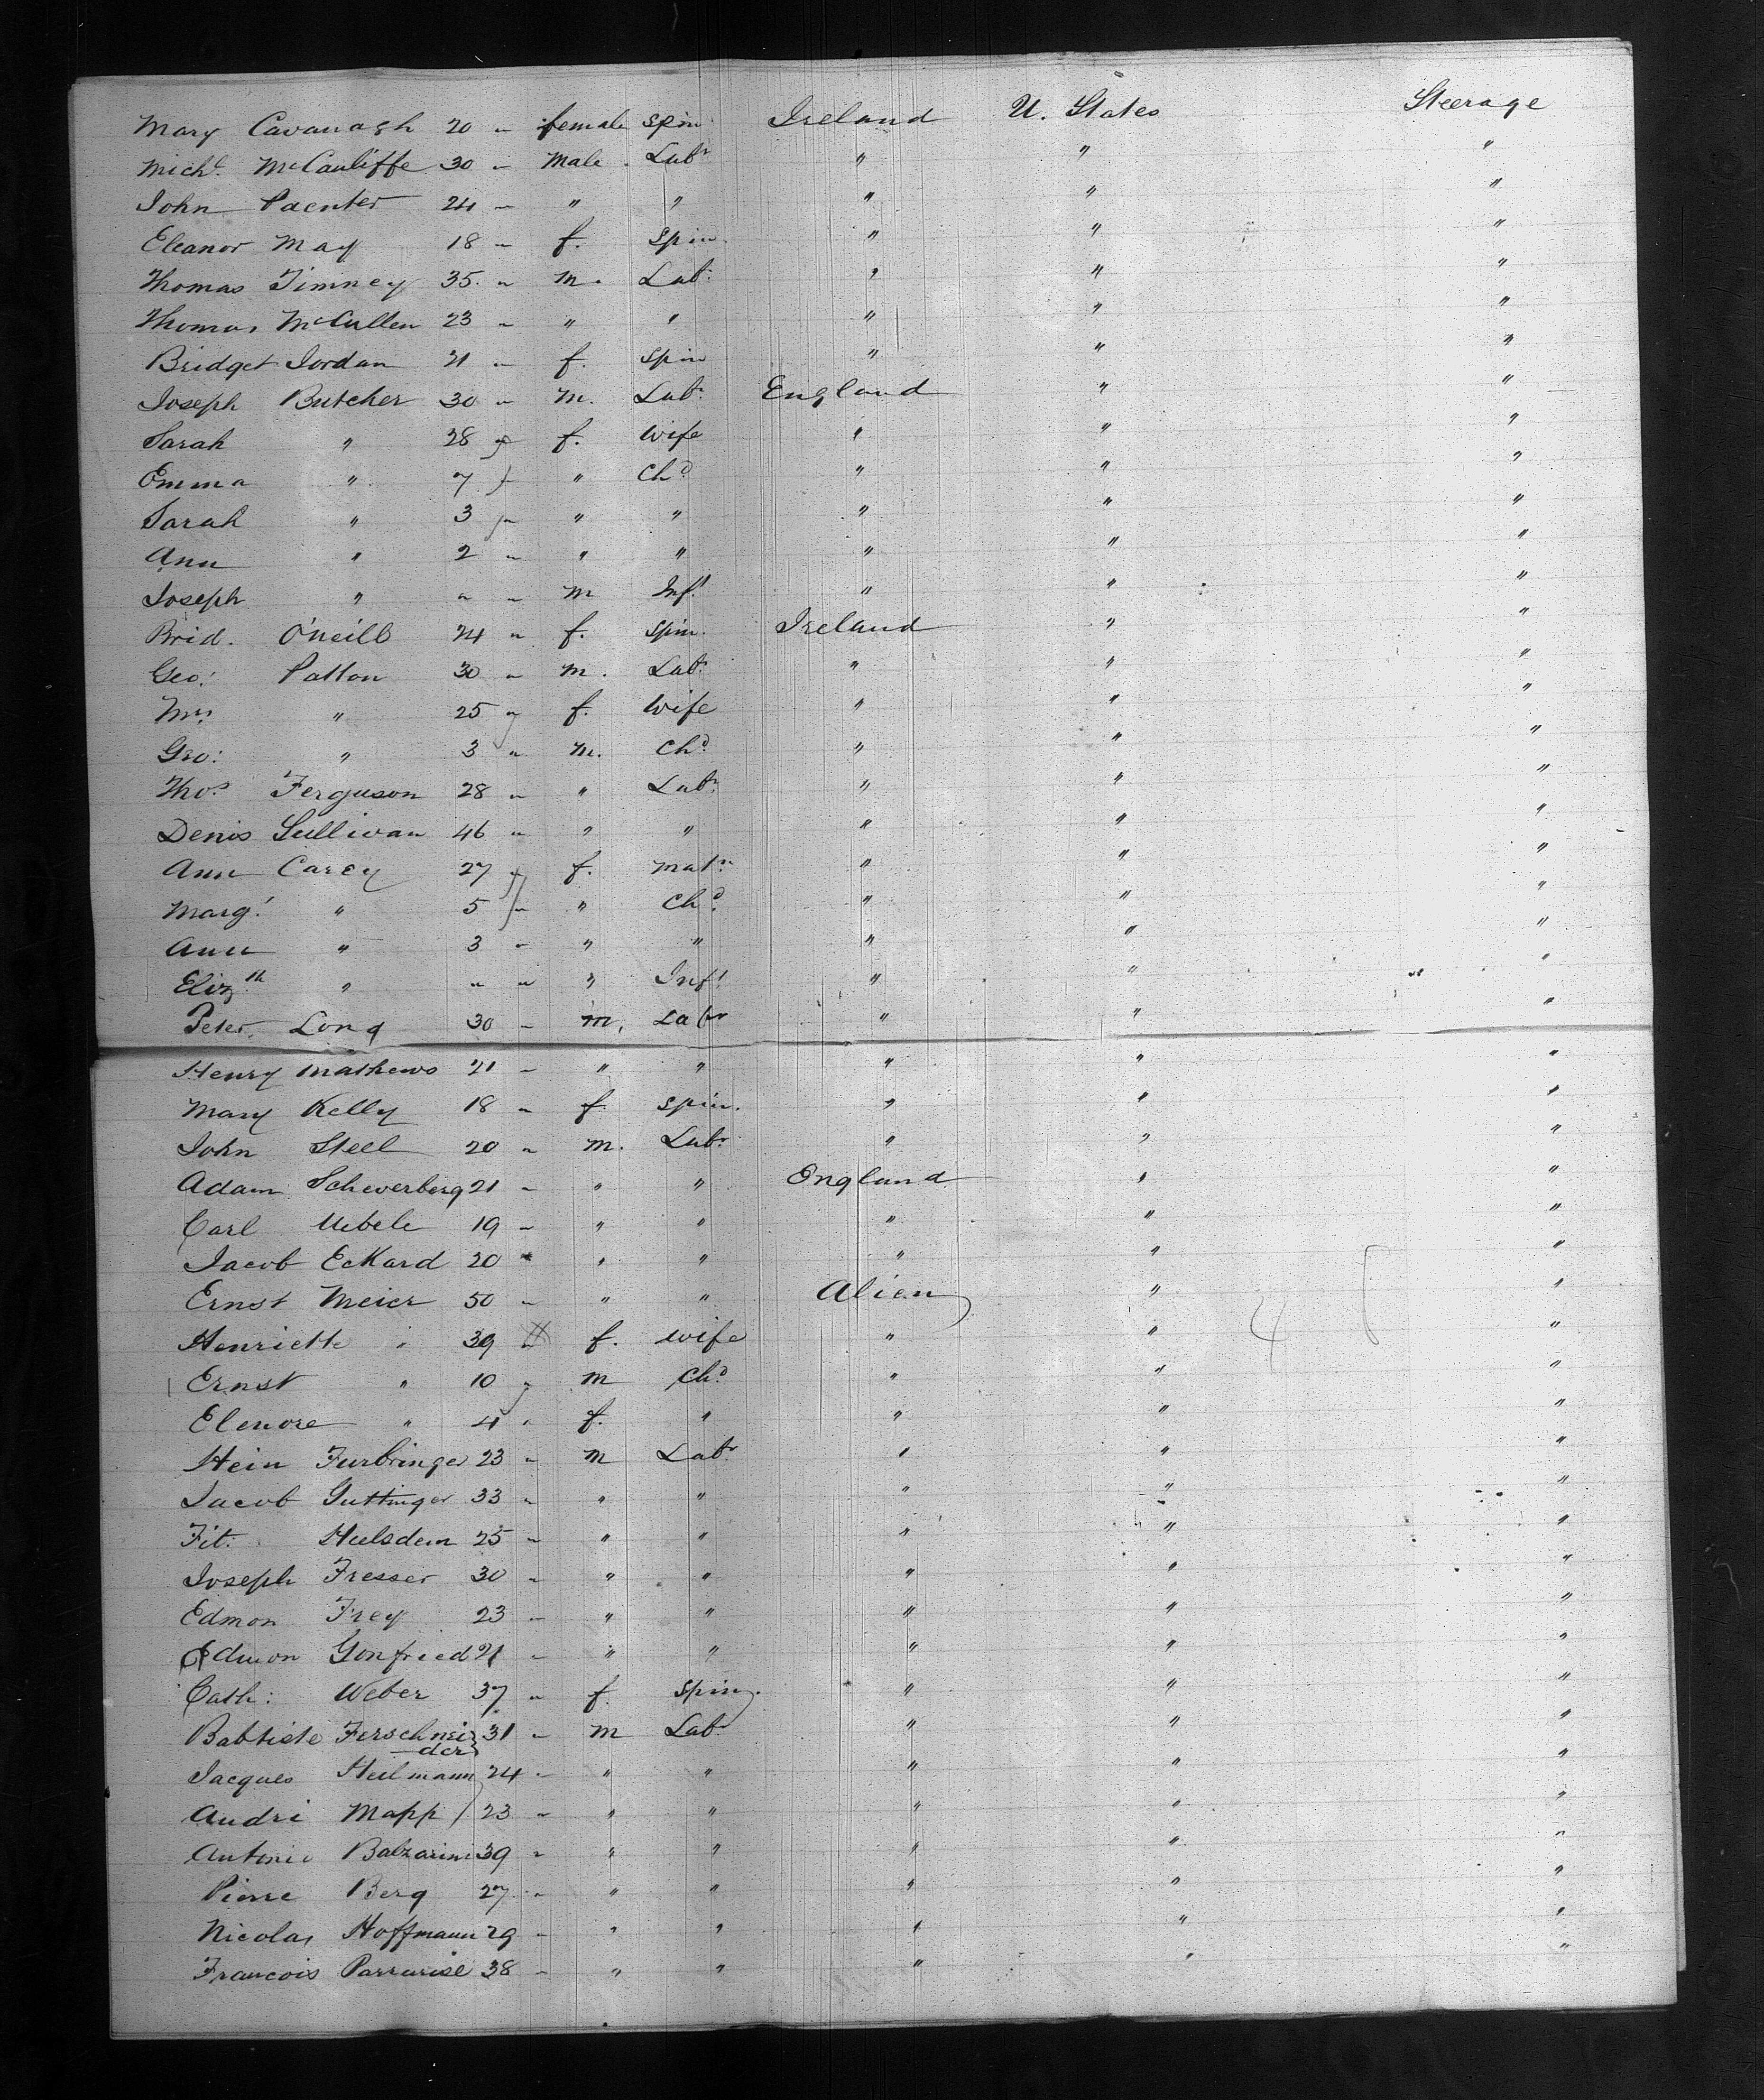 Mary Cavanagh 20 " female Spin. Ireland U. States Steerage
Mich.l McCauliffe 30 " Male Lab.r " " "
John Paenter 24 " " " " " "
Eleanor May 18 " f. Spin. " " "
Thomas Timney 35 " m. Lab.r " " "
Thomas McCullen 23 " " " " " "
Bridget Jordan 21 " f. Spin " " "
Joseph Butcher 30 " m. Lab.r England " "
Sarah " 28 " f. Wife " " "
Emma " 7 " " Ch.d " " "
Sarah " 3 " " " " " "
Ann " 2 " " " " " "
Joseph " " " m Inf.t " " "
Brid. O'Neill 24 " f. Spin. Ireland " "
Geo: Patton 30 " m. Lab.r " " "
Mrs. " 25 " f. Wife " " "
Geo: " 3 " m. Ch.d " " "
Tho.s Ferguson 28 " " Lab.r " " "
Denis Sullivan 46 " " " " " "
Ann Carey 27 " f. Mat.n " " "
Marg.t " 5 " " Ch.d " " "
Ann " 3 " " " " " "
Eliz.th " " " " Inf.t " " "
Peter Long 30 " m. Labr " " "
Henry Mathews 21 " " " " " "
Mary Kelly 18 " f. Spin. " " "
John Steel 20 " m. Lab.r " " "
Adam Scheverberg 21 " " " England " "
Carl Uebele 19 " " " " " "
Jacob Eckard 20 " " " " " "
Ernst Meier 50 " " " Alien " "
Henriette " 39 " f. Wife " " 4 "
Ernst " 10 " m Ch.d " " "
Elenore " 4 " f. " " " "
Hein Furbringer 23 " m Lab.r " " "
Jacob Guttinger 33 " " " " " "
Fit. Hulsdem 25 " " " " " "
Joseph Fresser 30 " " " " " "
Edmon Frey 23 " " " " " "
Edmon Gonfried 21 " " " " " "
Cath: Weber 37 " f. Spin. " " "
Babtiste Ferschnei 31 " m Lab.r " " "
-der
Jacques Heilmann 24 " " " " " "
Andri Mapp 23 " " " " " "
Antonio Balzarini 39 " " " " " "
Pierre Berg 27 " " " " " "
Nicolas Hoffmann 29 " " " " " "
Francois Parrarisl 38 " " " " " "